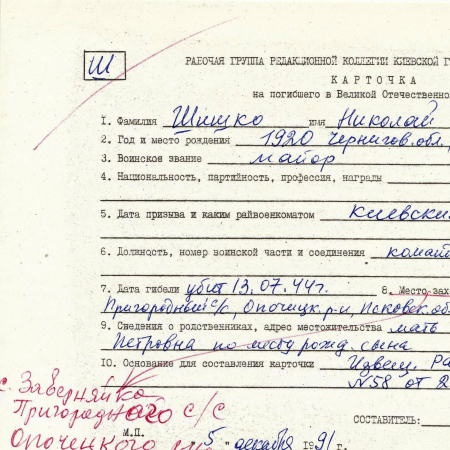 Ш
РАБОЧАЯ ГРУППА РЕДАКЦИОННОЙ КОЛЛЕГИИ КИЕВСКОЙ Г
КАРТОЧКА
на погибшего в Великой Отечественно
1. Фамилия Шишко имя Николай
2. Год и место рождения 1920 Чернигов.обл.,
3. Воинское звание майор
4. Национальность, партийность, профессия, награды
5. Дата призыва и каким райвоенкоматом Киевски
6. Должность, номер воинской части и соединения команд
7. Дата гибели убит 13.07.44г. 8. Место зах
Пригородный с/с, Опочицк. р-н, Псковск. об
9. Сведения о родственниках, адрес местожительства мать
Петровна по месту рожд. сына
10. Основание для составления карточки Извещ. Ра
№58 от 2
с. Заверняйко
Пригородного с/с
СОСТАВИТЕЛЬ:
Опоченкого
М.П.
"5" декабря 1991г.